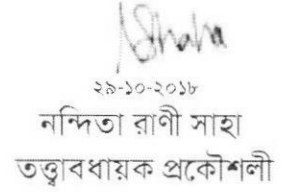 ২৯-১০-২০১৮
নন্দিতা রাণী সাহা
তত্ত্বাবধায়ক প্রকৌশলী